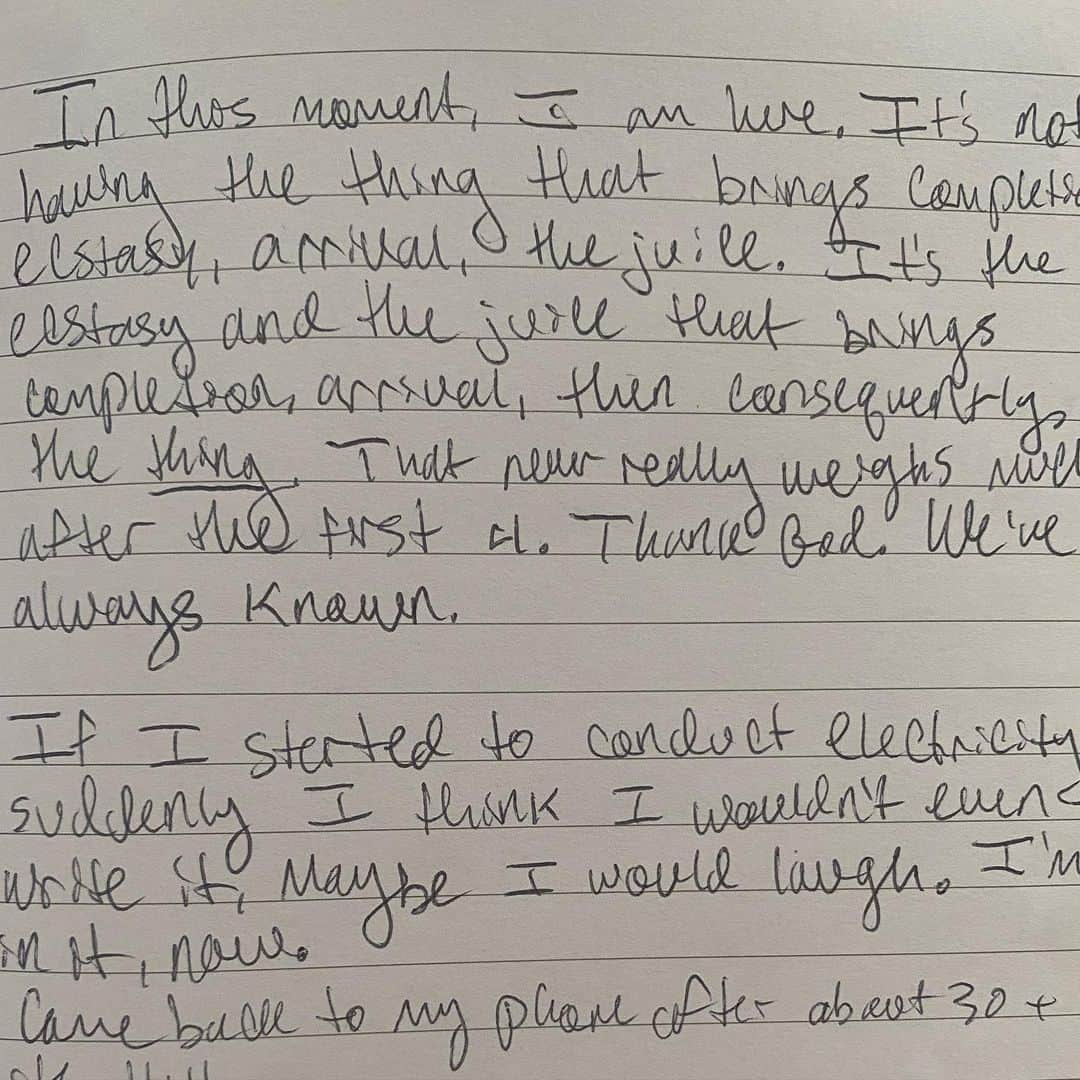 In this moment, I am here. It's not
having the thing that brings completi
ecstasy, arrival, the juice. It's the
ecstasy and the juice that brings
completion, arrival, then consequently,
the thing. That never really weighs
after the first . Thank God. We've
always known.
If I started to conduct electricity
suddenly I think I wouldn't even
write it, Maybe I would laugh. I'm
in it, now.
Came back to my phone after about 30 +